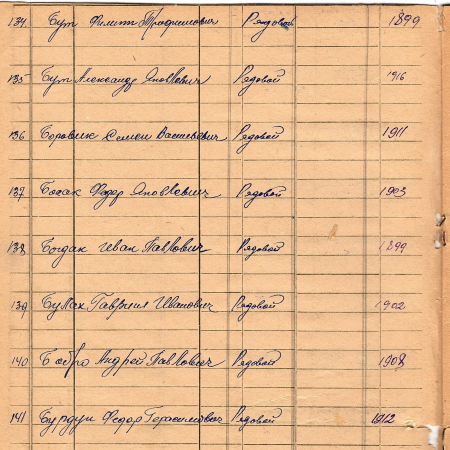 134 Бут Филипп Трофимович Рядовой 1899
135 Бут Александр Яковлевич Рядовой 1916
136 Боровик Семен Васильевич Рядовой 1911
137 Босак Федор Яковлевич Рядовой 1903
138 Богдак Иван Павлович Рядовой 1899
139 Булах Гавриил Иванович Рядовой 1902
140 Бобро Андрей Павлович Рядовой 1908
141 Бурдун Федор Герасимович Рядовой 1912